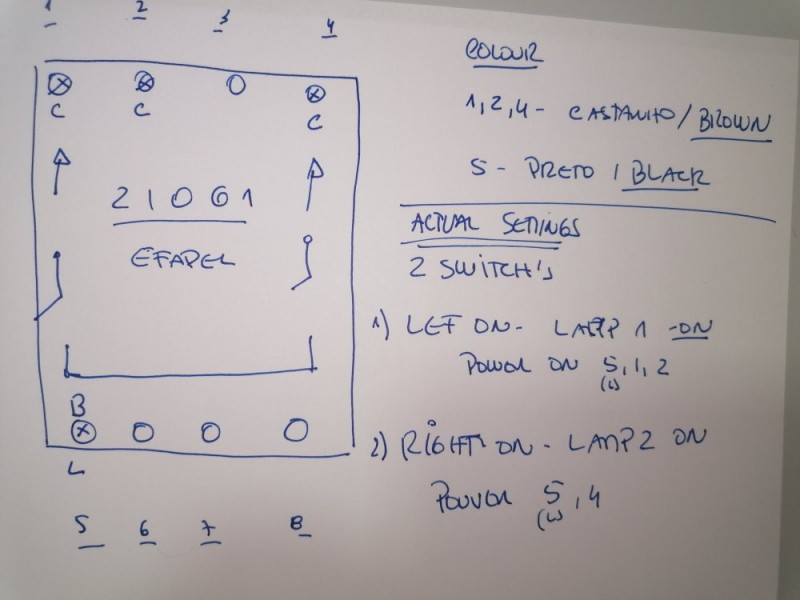 1 2 3 4
C C C
21061
EFAPEL
B
L
5 6 7 8
COLOUR
1,2,4 - CASTANHO / BROWN
5 - PRETO / BLACK
ACTUAL SETTINGS
2 SWITCH'S
1) LEF ON - LAMP 1 - ON
POWER ON 5,1,2
(L)
2) RIGHT ON - LAMP 2 ON
POWER 5,4
(L)